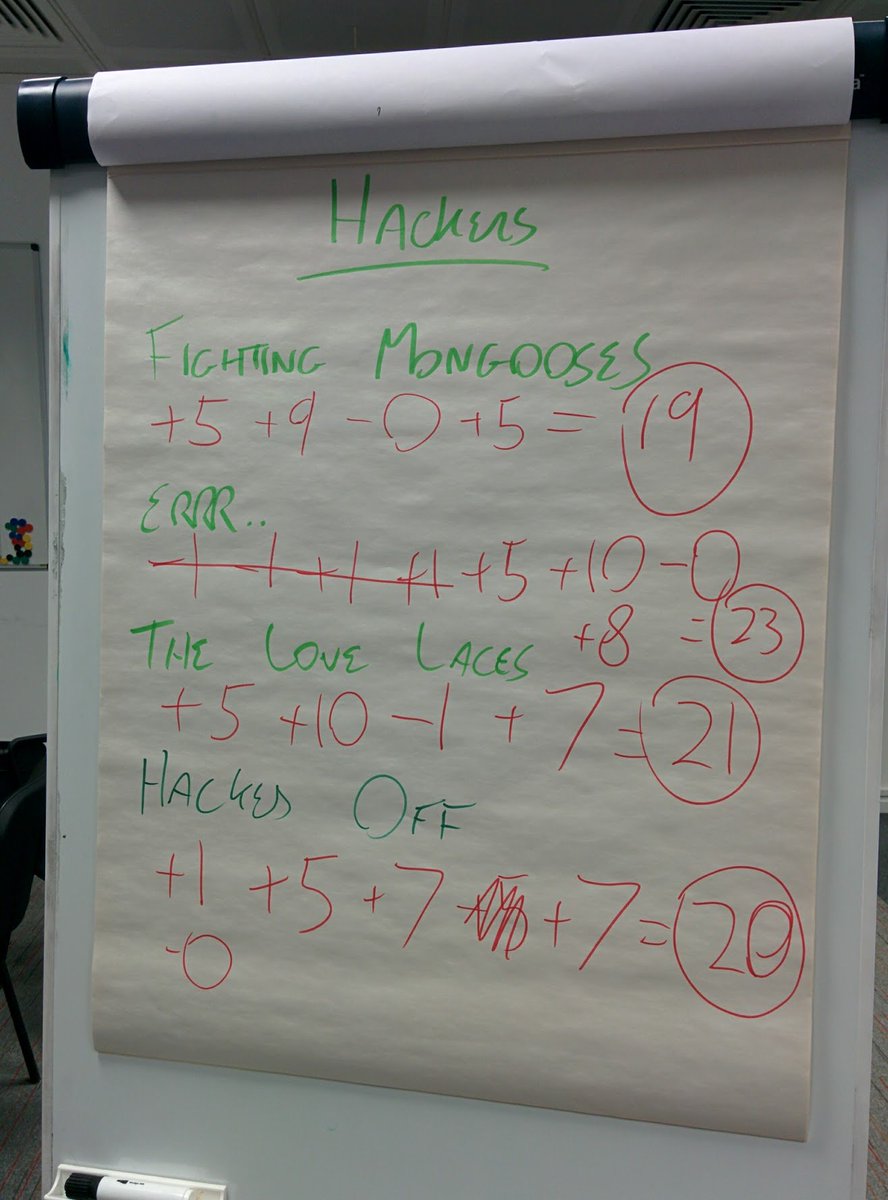 HACKERS
FIGHTING MONGOOSES
+5 +9 -0 +5 = 19
ERRR..
-1 -1 +1 +1 +5 +10 -0
+8 = 23
THE LOVE LACES
+5 +10 -1 +7 = 21
HACKED OFF
+1 +5 +7 +7 = 20
-0